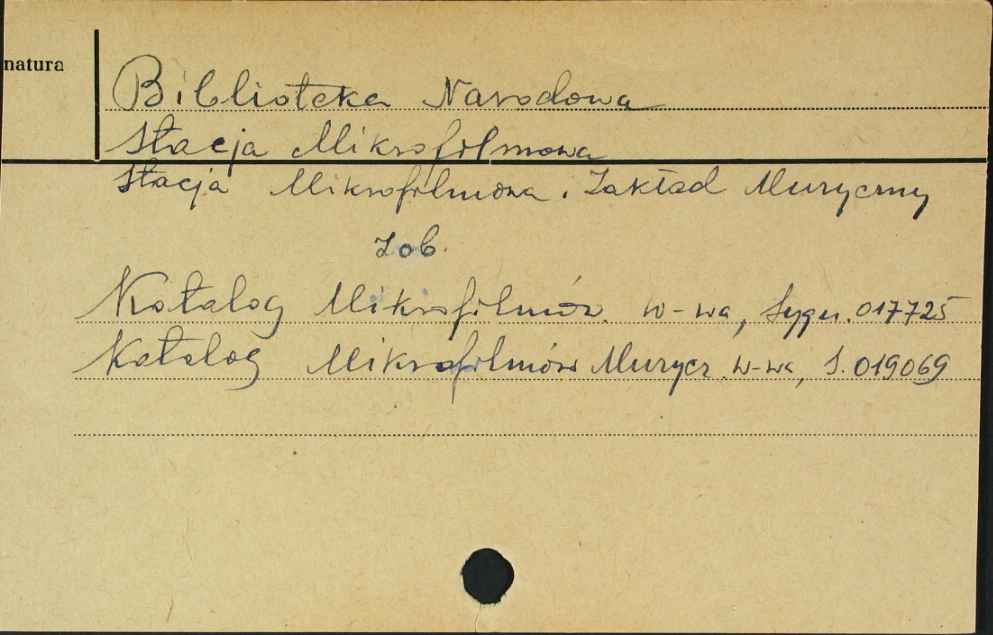 natura
Biblioteka Narodowa
Stacja Mikrofilmowa
Stacja Mikrofilmowa. Zakład Muzyczny
Zob.
Katalog Mikrofilmów. W-wa, Sygn. 017725
Katalog Mikrofilmów Muzycz. W-wa, S. 019069